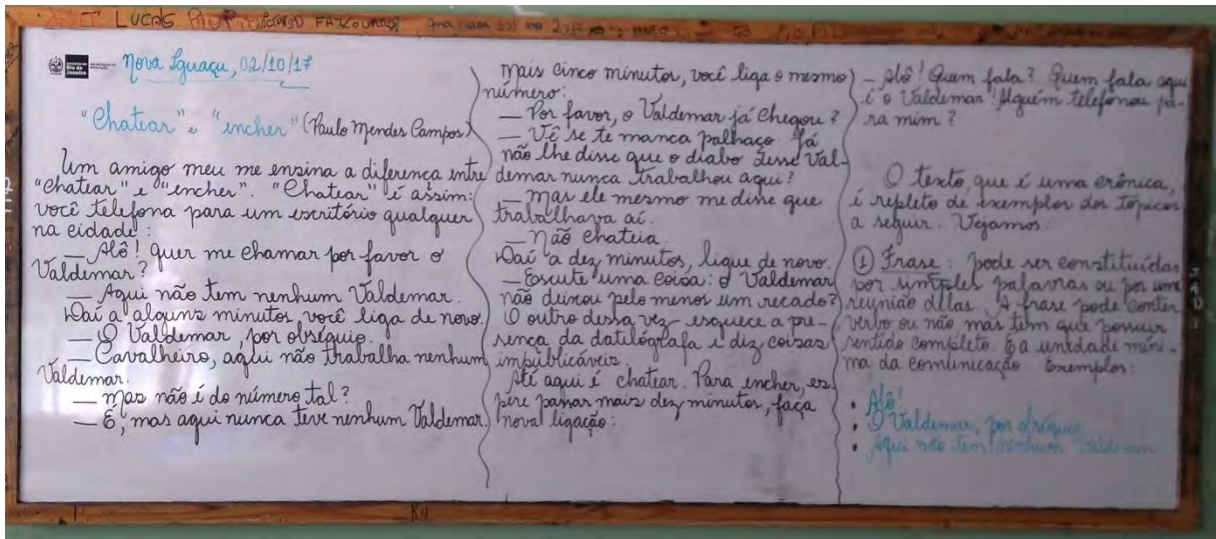 LUCAS
Nova Iguaçu, 02/10/17
"Chatear" e "encher" (Paulo Mendes Campos)
Um amigo meu me ensina a diferença entre
"chatear" e "encher". "Chatear" é assim:
você telefona para um escritório qualquer
na cidade:
— Alô! quer me chamar por favor o
Valdemar?
— Aqui não tem nenhum Valdemar.
Daí a alguns minutos você liga de novo.
— O Valdemar, por obséquio.
— Cavalheiro, aqui não trabalha nenhum
Valdemar.
— mas não é do número tal?
— É, mas aqui nunca teve nenhum Valdemar.
Mais cinco minutos, você liga o mesmo
número:
— Por favor, o Valdemar já chegou?
— Vê se te manca palhaço Já
não lhe disse que o diabo desse Val-
demar nunca trabalhou aqui?
— mas ele mesmo me disse que
trabalhava aí.
— Não chateia.
Daí a dez minutos, ligue de novo.
— Escute uma coisa: o Valdemar
não deixou pelo menos um recado?
O outro dessa vez esquece a pre-
sença da datilógrafa e diz coisas
impublicáveis.
Até aqui é chatear. Para encher, es
pere passar mais dez minutos, faça
nova ligação:
— Alô! Quem fala? Quem fala aqui
é o Valdemar! Alguém telefonou pa-
ra mim?
O texto, que é uma crônica,
é repleto de exemplos dos tópicos
a seguir. Vejamos:
① Frase: pode ser constituídas
por simples palavras ou por uma
reunião delas. A frase pode conter
verbo ou não mas tem que possuir
sentido completo. É a unidade míni-
ma da comunicação Exemplos:
• Alô!
• O Valdemar, por obséquio
• Aqui não tem nenhum Valdemar